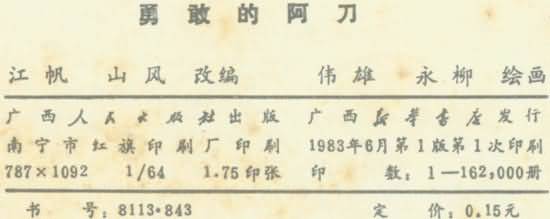 勇敢的阿刀
江帆 山风 改编 伟雄 永柳 绘画
广西人民出版社出版 广西新华书店发行
南宁市红旗印刷厂印刷 1983年6月第1版第1次印刷
787×1092 1/64 1.75印张 印数：1—162,000册
书号：8113·843 定价：0.15元